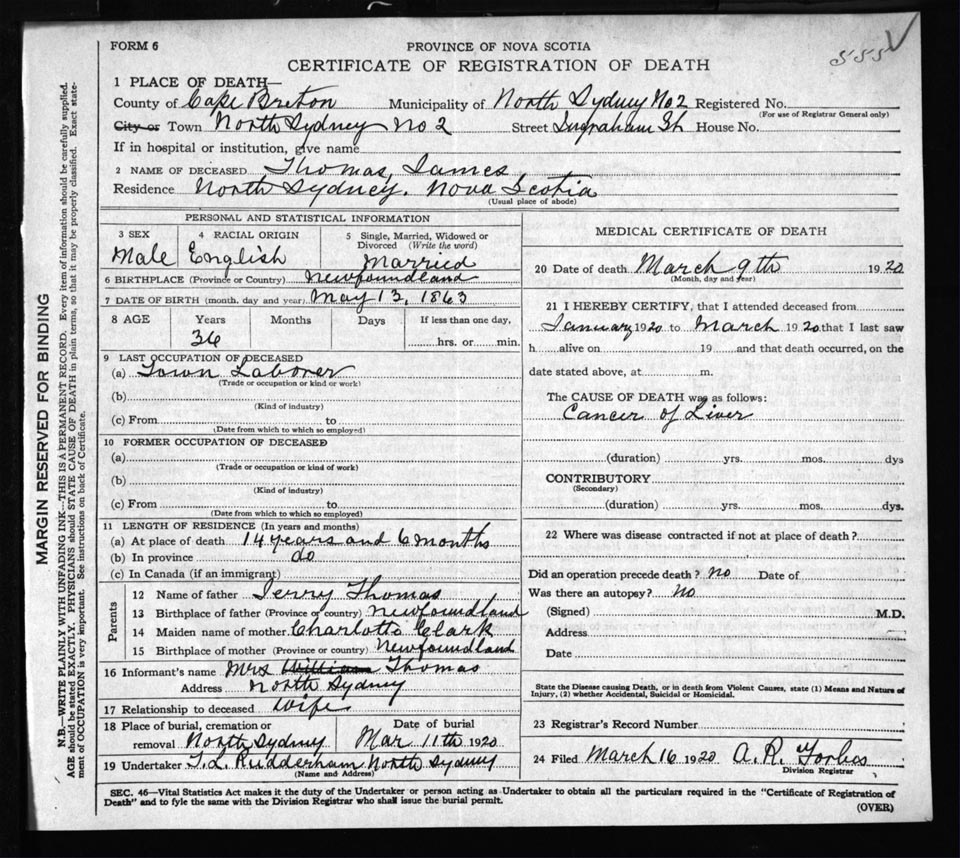 555 ✓
FORM 6
PROVINCE OF NOVA SCOTIA
CERTIFICATE OF REGISTRATION OF DEATH
1 PLACE OF DEATH—
County of Cape Breton Municipality of North Sydney No 2 Registered No.
(For use of Registrar General only)
City or Town North Sydney No 2 Street Ingraham St House No.
If in hospital or institution, give name
2 NAME OF DECEASED Thomas, James
Residence North Sydney, Nova Scotia
(Usual place of abode)
PERSONAL AND STATISTICAL INFORMATION
3 SEX Male
4 RACIAL ORIGIN English
5 Single, Married, Widowed or Divorced (Write the word) Married
6 BIRTHPLACE (Province or Country) Newfoundland
7 DATE OF BIRTH (month, day and year) May 13, 1863
8 AGE Years Months Days If less than one day,
36 hrs. or min.
9 LAST OCCUPATION OF DECEASED
(a) Town Laborer
(Trade or occupation or kind or work)
(b)
(Kind of industry)
(c) From to
(Date from which to which so employed)
10 FORMER OCCUPATION OF DECEASED
(a)
(Trade or occupation or kind of work)
(b)
(Kind of industry)
(c) From to
(Date from which to which so employed)
11 LENGTH OF RESIDENCE (In years and months)
(a) At place of death 14 years and 6 months
(b) In province do
(c) In Canada (if an immigrant)
Parents
12 Name of father Jerry Thomas
13 Birthplace of father (Province or country) Newfoundland
14 Maiden name of mother Charlotte Clark
15 Birthplace of mother (Province or country) Newfoundland
16 Informant's name Mrs William Thomas
Address North Sydney
17 Relationship to deceased Wife
18 Place of burial, cremation or
removal North Sydney
Date of burial
Mar 11th 1920
19 Undertaker T. L. Rudderham North Sydney
(Name and Address)
MEDICAL CERTIFICATE OF DEATH
20 Date of death March 9th 1920
(Month, day and year)
21 I HEREBY CERTIFY, that I attended deceased from
January 1920 to March 1920 that I last saw
h alive on 19 and that death occurred, on the
date stated above, at m.
The CAUSE OF DEATH was as follows:
Cancer of Liver
(duration) yrs. mos. dys
CONTRIBUTORY
(Secondary)
(duration) yrs. mos. dys.
22 Where was disease contracted if not at place of death?
Did an operation precede death? No Date of
Was there an autopsy? No
(Signed) M.D.
Address
Date
State the Disease causing Death, or in death from Violent Causes, state (1) Means and Nature of
Injury, (2) whether Accidental, Suicidal or Homicidal.
23 Registrar's Record Number
24 Filed March 16 1920 A. R. Forbes
Division Registrar
SEC. 46—Vital Statistics Act makes it the duty of the Undertaker or person acting as Undertaker to obtain all the particulars required in the "Certificate of Registration of
Death" and to fyle the same with the Division Registrar who shall issue the burial permit.
(OVER)
MARGIN RESERVED FOR BINDING
N.B.—WRITE PLAINLY WITH UNFADING INK—THIS IS A PERMANENT RECORD. Every item of information should be carefully supplied.
AGE should be stated EXACTLY. PHYSICIANS should STATE CAUSE OF DEATH in plain terms, so that it may be properly classified. Exact state-
ment of OCCUPATION is very important. See instructions on back of Certificate.